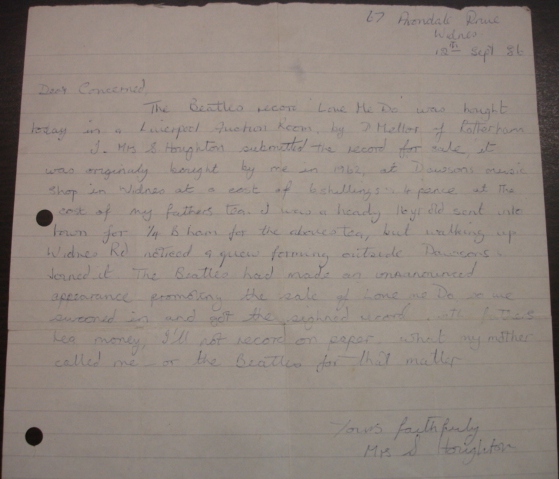 67 Avondale Drive
Widnes
12th Sept 86
Dear Concerned,
The Beatles record 'Love Me Do' was bought
today in a Liverpool Auction Room, by Mellor of Rotterham
I. Mrs S Houghton submitted the record for sale, it
was originally bought by me in 1962, at Dawsons music
shop in Widnes at a cost of 6 shillings & 4 pence at the
cost of my fathers tea. I was a heady 16yr old sent into
town for 1/4 lb ham for the above tea, but walking up
Widnes Rd noticed a queu forming outside Dawsons &
Joined it. The Beatles had made an unnanounced
appearance promoting the sale of Love me Do so we
swooned in and got the sighned record
tea money, I'll not record on paper what my mother
called me - or the Beatles for that matter
Yours faithfully
Mrs S Houghton